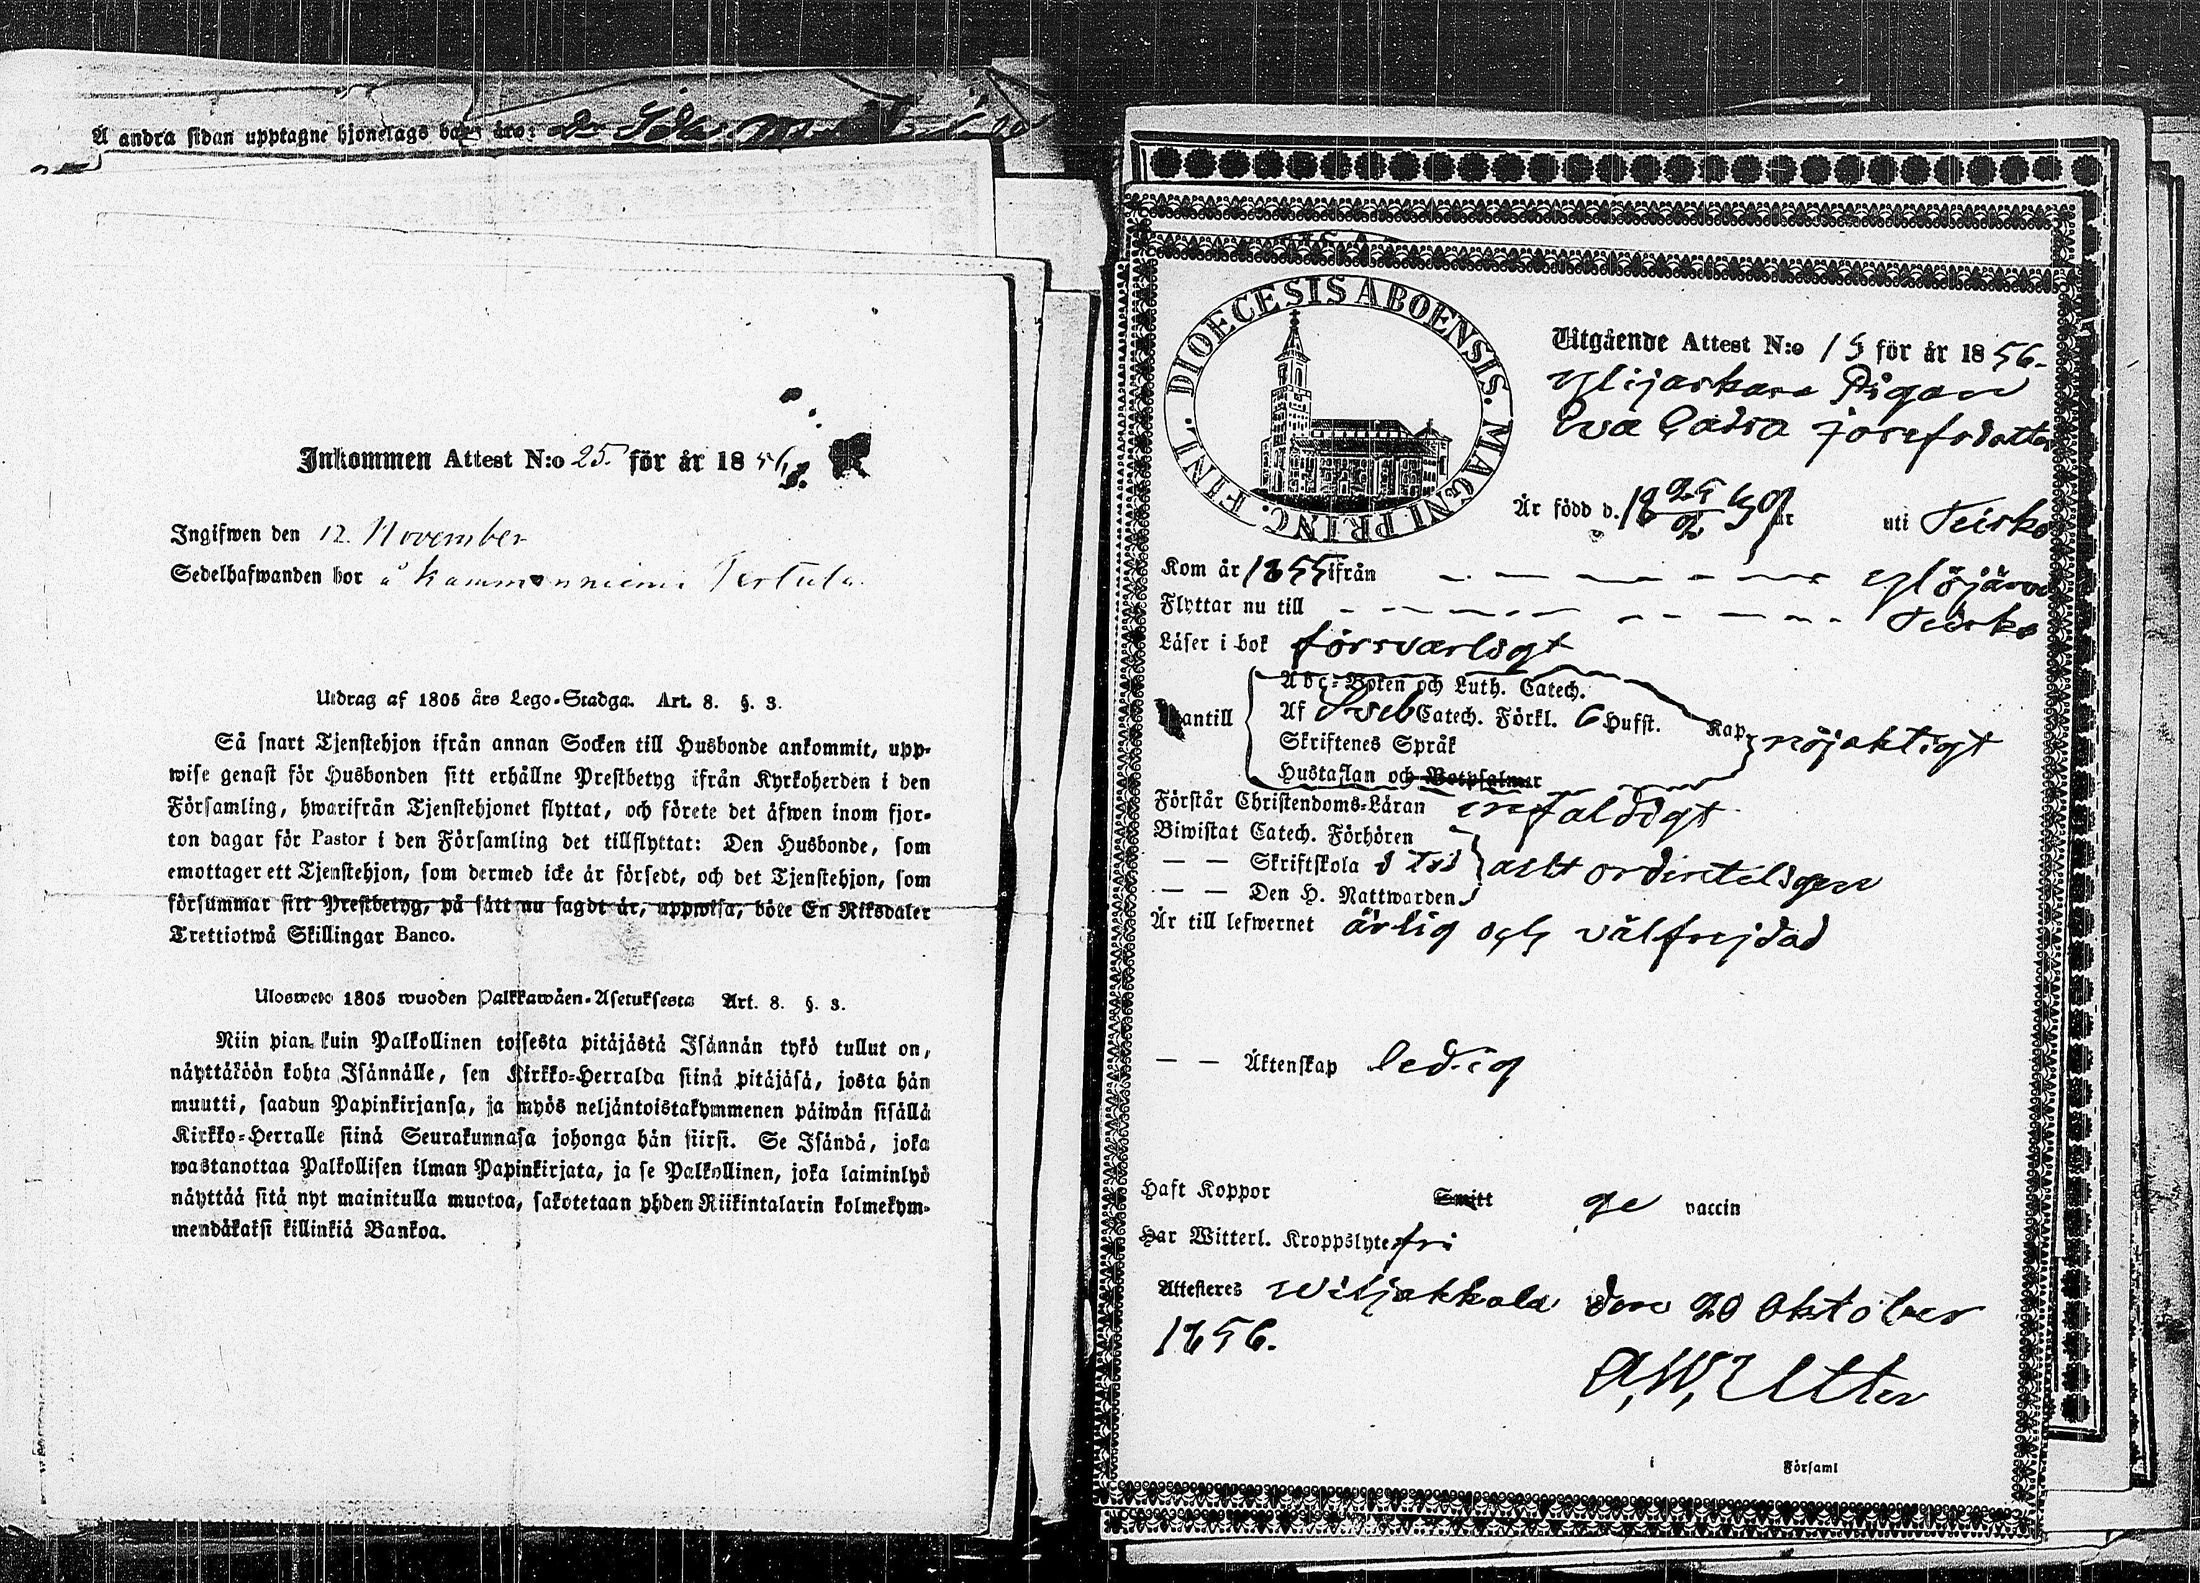 Å andra sidan upptagne hjonelags barn äro:
Inkommen Attest N:o 25. för år 1856.
Ingifwen den 12 November
Sedelhafwanden bor å Kammonniemi Pertula
Utdrag af 1805 års Lego-Stadga. Art. 8. §. 3.
Så snart Tjenstehjon ifrån annan Socken till Husbonde ankommit, upp-
wise genast för Husbonden sitt erhållne Prestbetyg ifrån Kyrkoherden i den
Församling, hwarifrån Tjenstehjonet flyttat, och förete det äfwen inom fjor-
ton dagar för Pastor i den Församling det tillflyttat: Den Husbonde, som
emottager ett Tjenstehjon, som dermed icke är försedt, och det Tjenstehjon, som
försummar sitt Prestbetyg, på sätt nu sagdt är, uppwisa, böte En Riksdaler
Trettiotwå Skillingar Banco.
Ulosweto 1805 wuoden Palkkawäen-Asetuksesta Art. 8. §. 3.
Niin pian kuin Palkollinen toisesta pitäjästä Isännän tykö tullut on,
näyttäköön kohta Isännälle, sen Kirkko-Herralda siinä pitäjäsä, josta hän
muutti, saadun Papinkirjansa, ja myös neljäntoistakymmenen päiwän sisällä
Kirkko-Herralle siinä Seurakunnasa johonga hän siirsi. Se Isändä, joka
wastanottaa Palkollisen ilman Papinkirjata, ja se Palkollinen, joka laiminlyö
näyttää sitä nyt mainitulla muotoa, sakotetaan yhden Riikintalarin kolmekym-
mendäkaksi killinkiä Bankoa.
DIOECESIS ABOENSIS. MAGNI PRINC. FINL.
Utgående Attest N:o 15 för år 1856.
Ylijaskara Pigan
Eva Cajsa Josefsdotter
Är född d. 18 25/9 39 uti Teisko
Kom år 1855 ifrån Ylöjärvi
Flyttar nu till Teisko
Läser i bok försvarligt
Abc-Boken och Luth. Catech.
Utantill Af Sveb Catech. Förkl. 6 Hufst. Kap. nöjaktigt
Skriftenes Språk
Hustaflan och Botpsalmer
Förstår Christendoms-Läran enfaldigt
Biwistat Catech. Förhören
— — Skriftskola
— — Den H. Nattwarden
Är till lefwernet ärlig och välfrejdad
— — Äktenskap ledig
Haft Koppor Smitt ge vaccin
Har Witterl. Kroppslyte fri
Attesteres Wiljakkala den 20 Oktober
1856.
A. W. Utter
i Församl